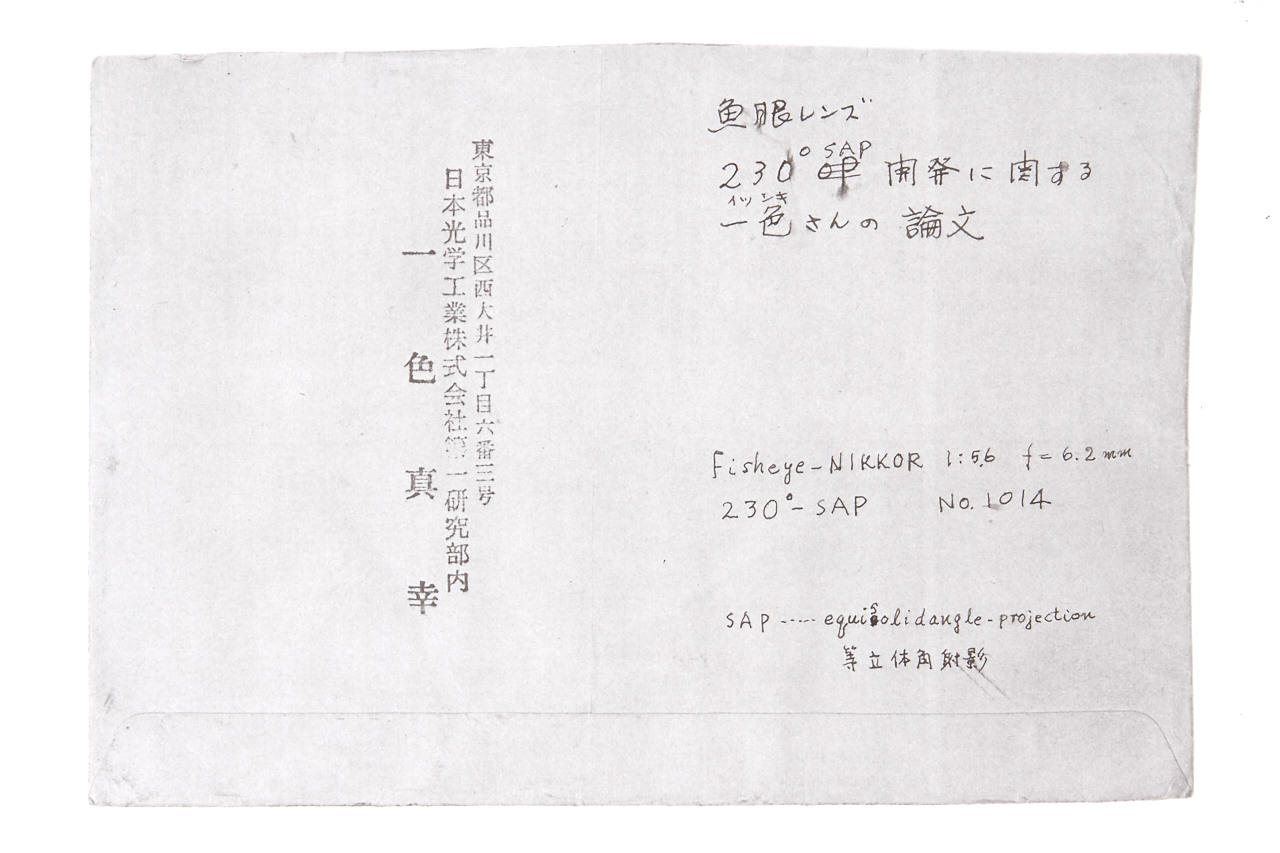 東京都品川区西大井一丁目六番三号
日本光学工業株式会社第一研究部内
一色真幸
魚眼レンズ
230° SAP 開発に関する
イッシキ
一色さんの論文
Fisheye-NIKKOR 1:5.6 f=6.2mm
230°-SAP No.1014
SAP ----- equisolidangle-projection
等立体角射影